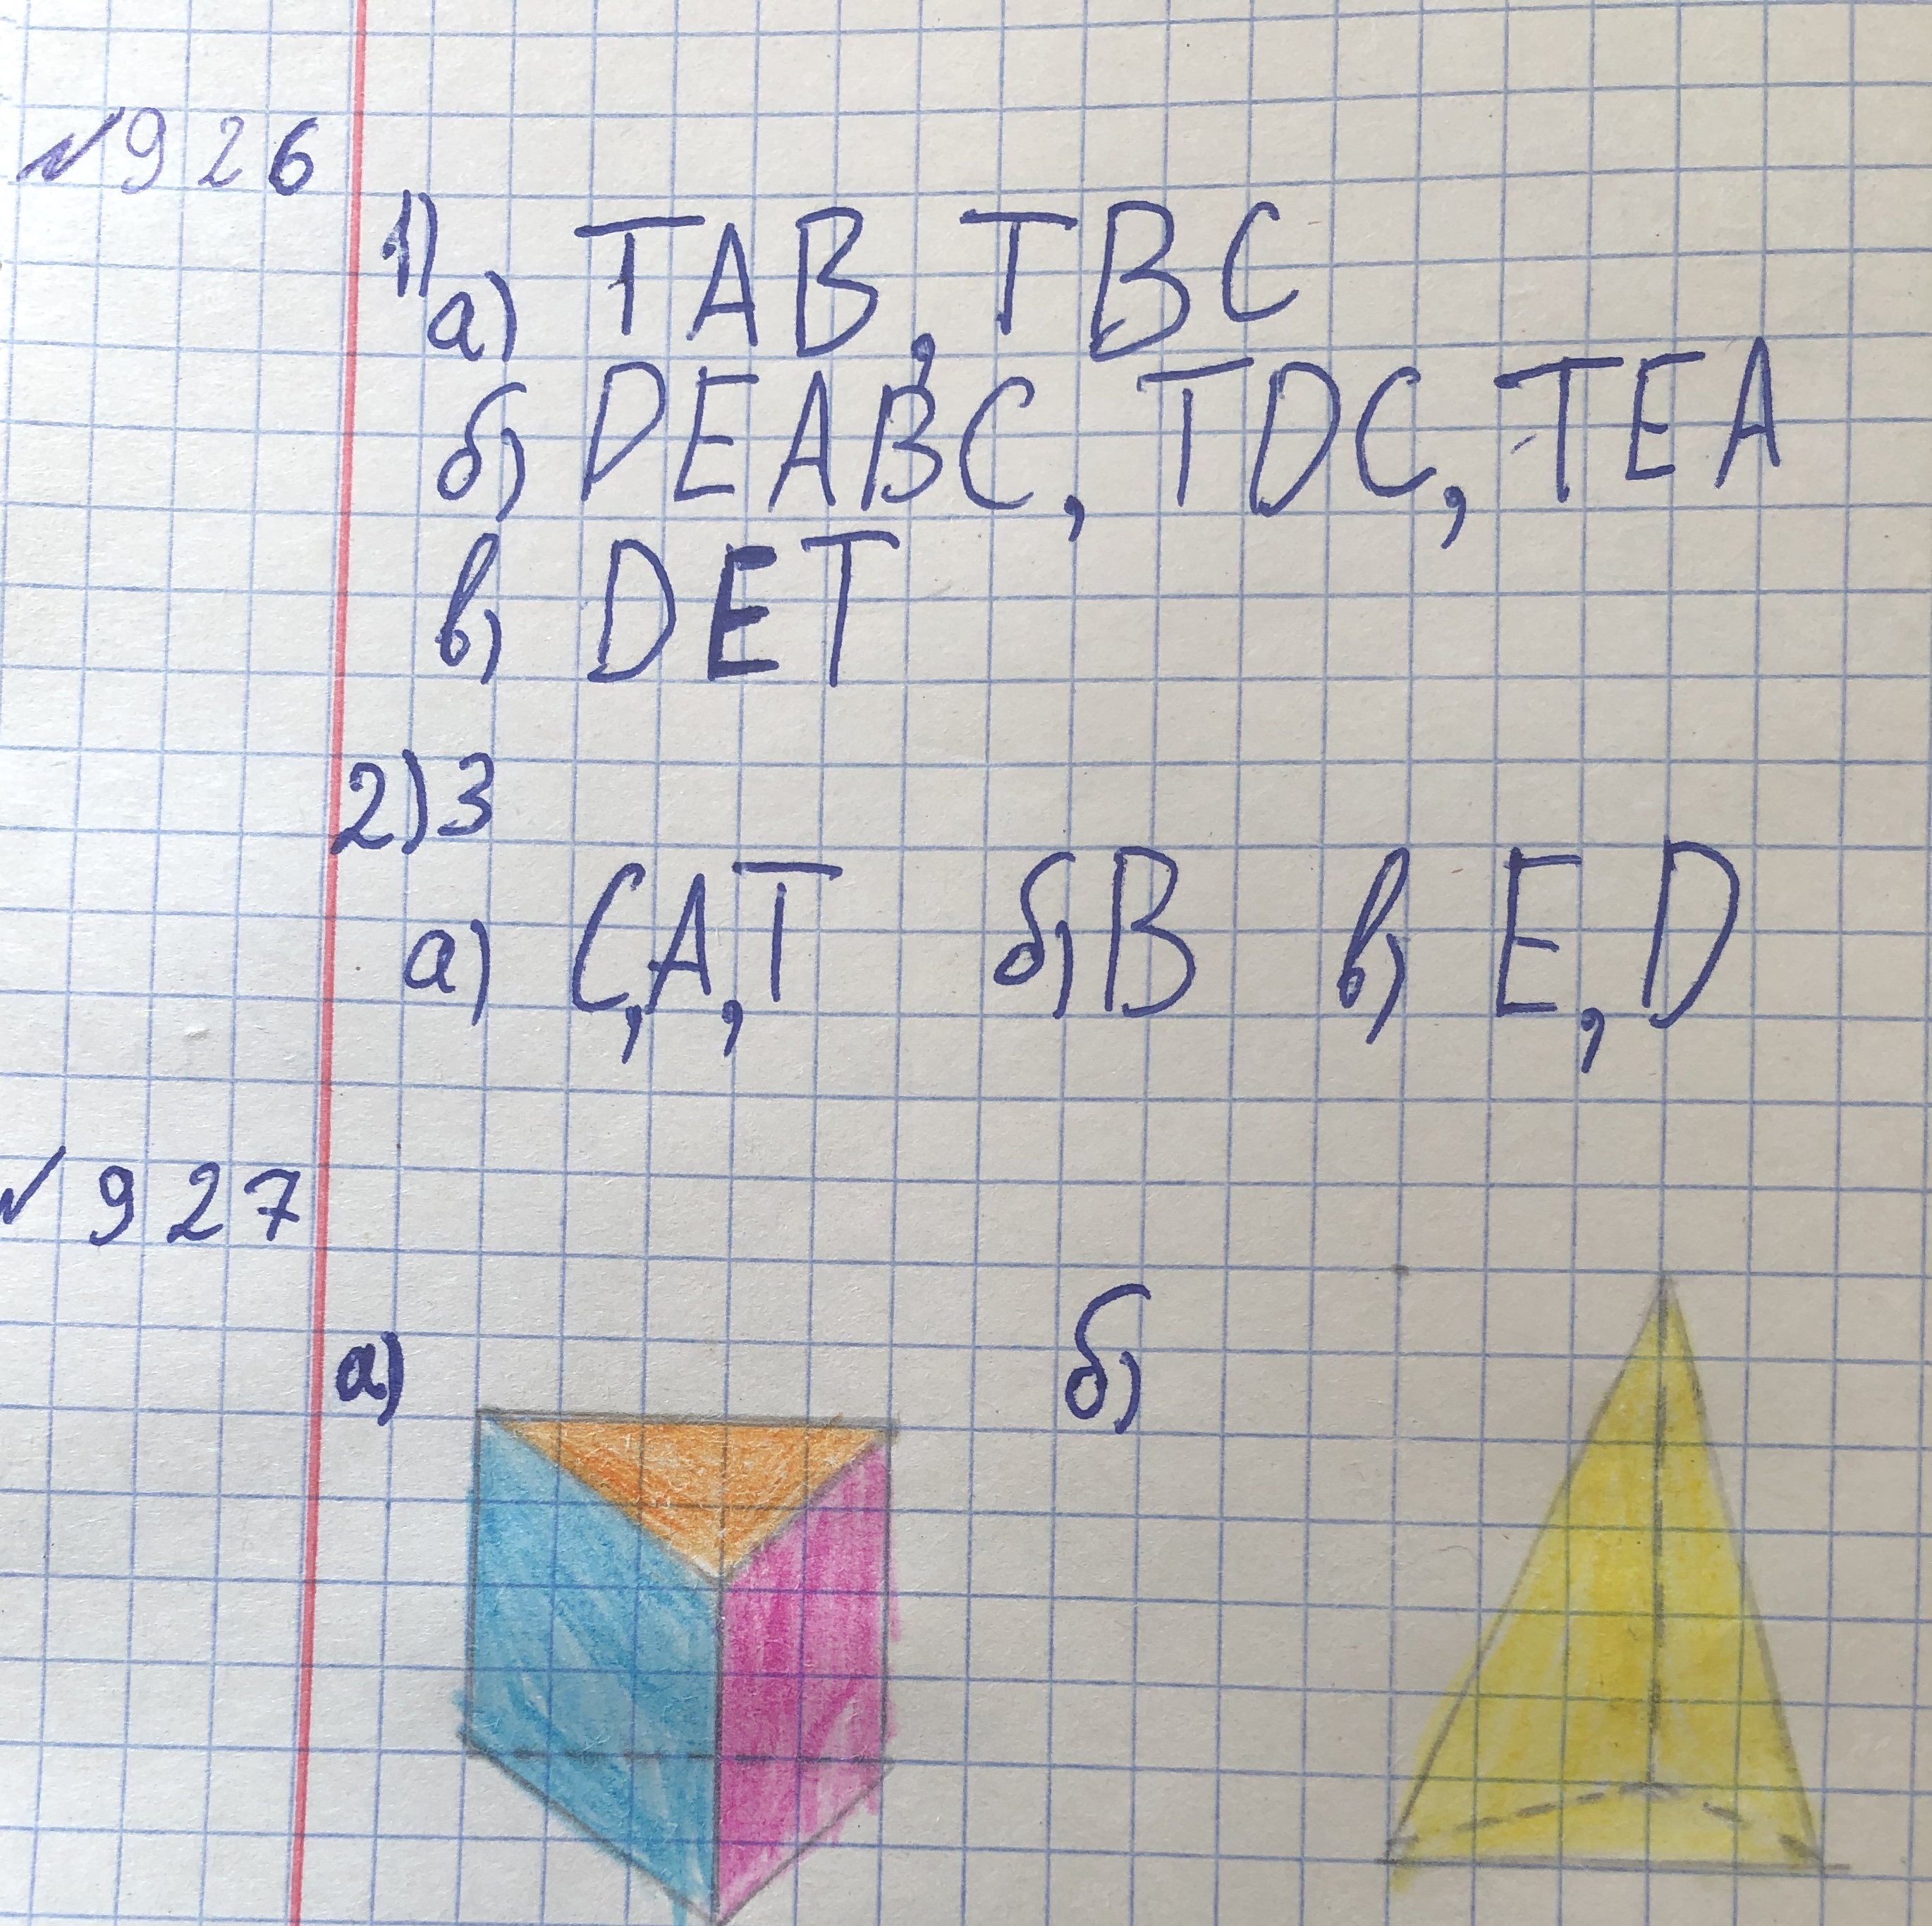 №926
1) а) TAB, TBC
б) DEABC, TDC, TEA
в) DET
2) 3
а) C, A, T б) B в) E, D
№927
а) б)